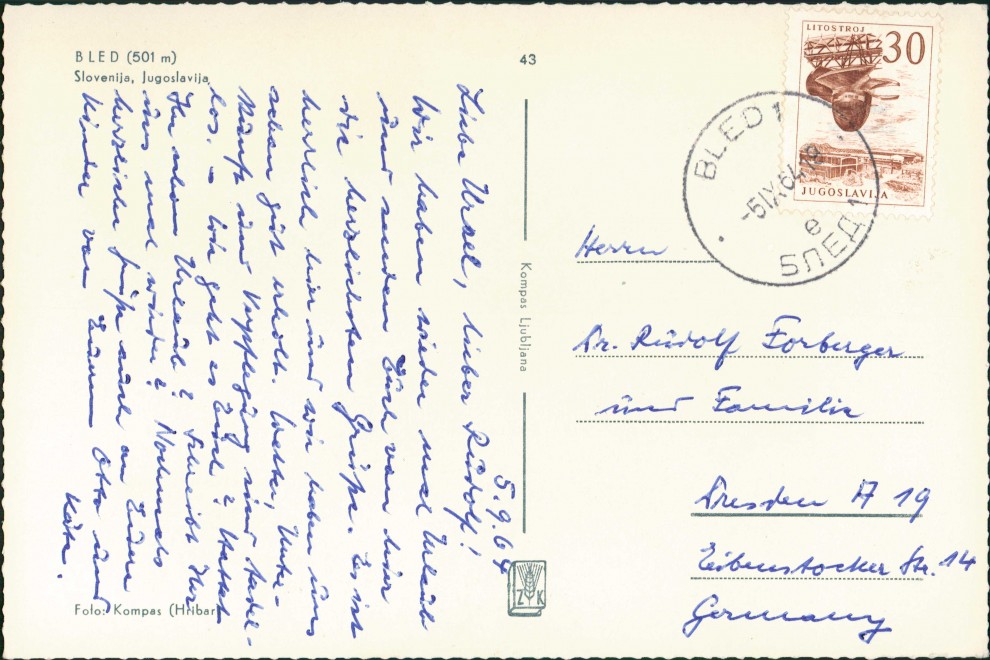 BLED (501 m)
Slovenija, Jugoslavija
43
LITOSTROJ
30
JUGOSLAVIJA
BLED 1
-5IX64.19
e
БЛЕД 1
5.9.64
Liebe Ursel, lieber Rudolf!
Wir haben wieder mal Urlaub
und senden Euch von hier
die herzlichsten Grüße. Es ist
herrlich hier und wir haben uns
schon gut erholt. Wetter, Unter-
kunft und Verpflegung sind tadel-
los. – Wie geht es Euch? Hattet
Ihr schon Urlaub? Schreibt Ihr
uns mal wieder? Nochmals
herzliche Grüße auch an Eure
Kinder von Eurem Otto und
Käte.
Herrn
Dr. Rudolf Forberger
und Familie
Dresden A 19
Eibenstocker Str. 14
Germany
Kompas Ljubljana
ZK
Foto: Kompas (Hribar)